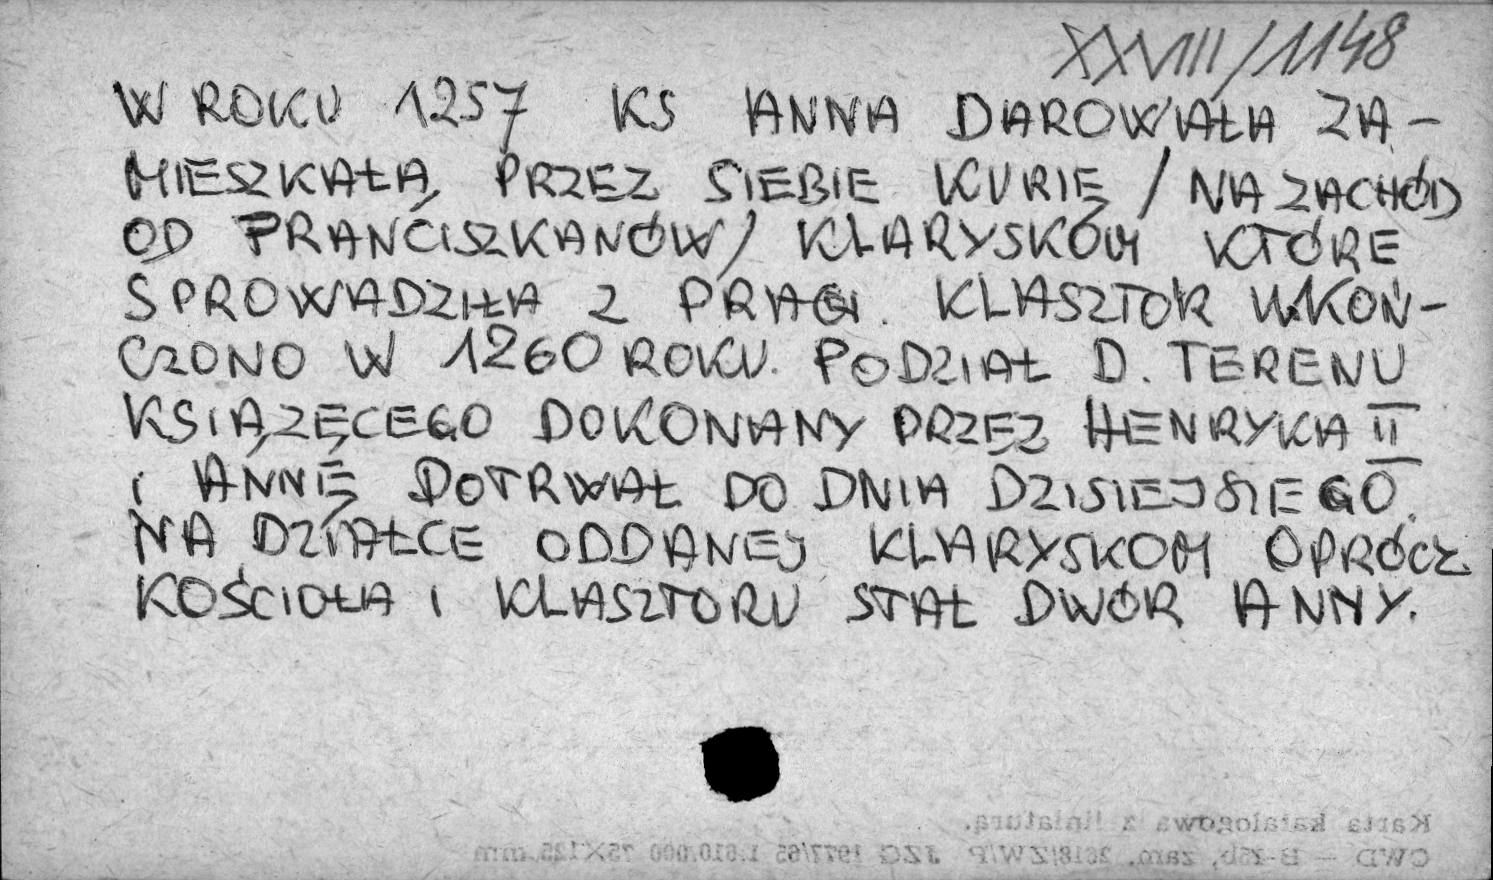 XXVIII/1148
W ROKU 1257 KS ANNA DAROWAŁA ZA-
MIESZKAŁĄ PRZEZ SIEBIE KURIĘ / NA ZACHÓD
OD FRANCISZKANÓW/ KLARYSKÓM KTÓRE
SPROWADZIŁA Z PRAGI. KLASZTOR UKOŃ-
CZONO W 1260 ROKU. PODZIAŁ D. TERENU
KSIĄŻĘCEGO DOKONANY PRZEZ HENRYKA II
i ANNĘ DOTRWAŁ DO DNIA DZISIEJSIEGO.
NA DZIAŁCE ODDANEJ KLARYSKOM OPRÓCZ
KOŚCIOŁA I KLASZTORU STAŁ DWÓR ANNY.
Karta katalogowa z liniaturą.
CWD — B-25b, zam. 2618/ZW/P JZG 1977/65 1.010.000 75X125 mm